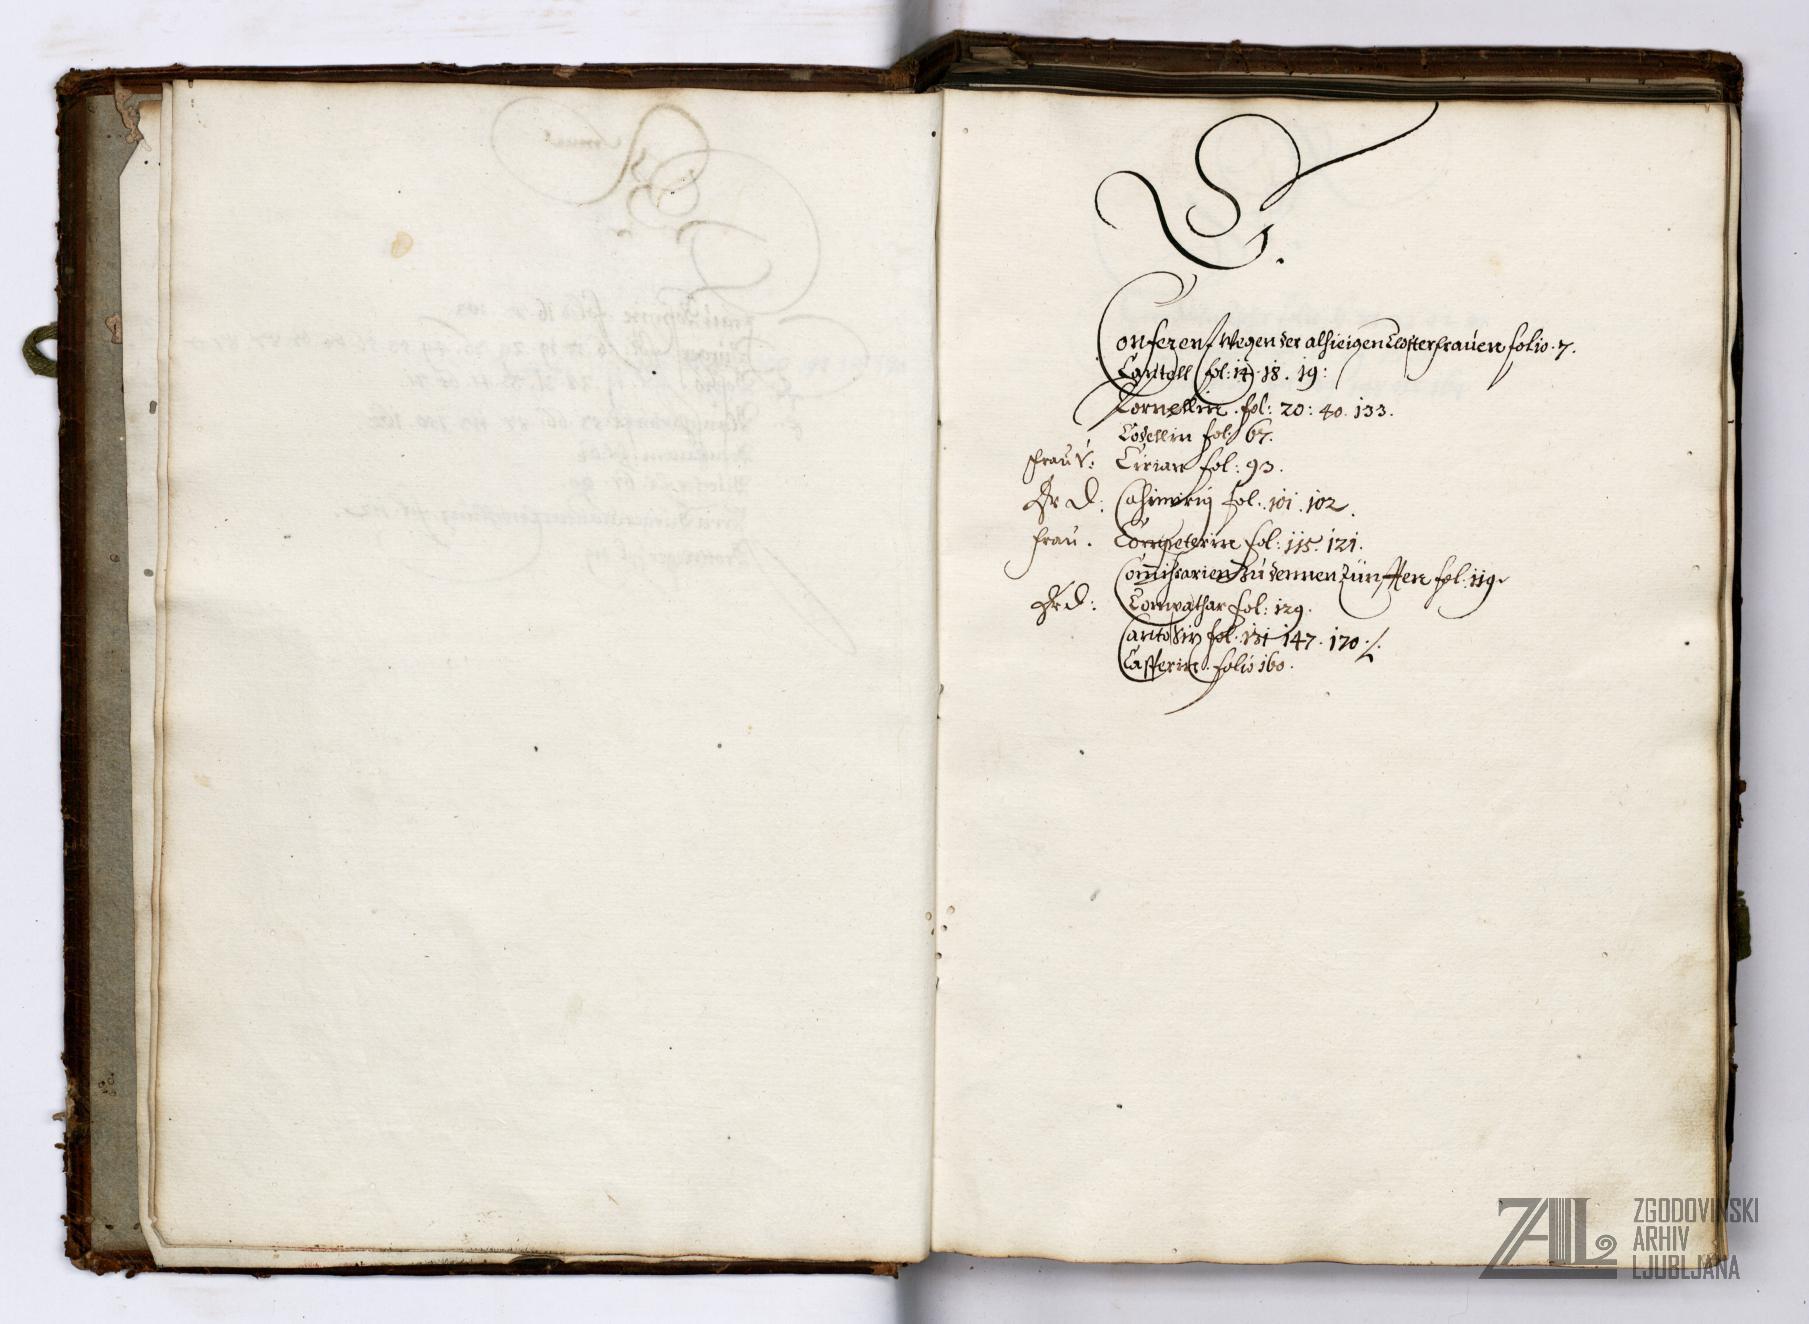 C.
Conferenz wegen der alhieigen Closterfrauen folio. 7.
Cantoll fol: 14. 18. 19:
Cornellin. fol: 20: 40. 133.
Codellin fol: 67.
Frau V: Cirian fol: 93.
Hr D: Cahimirin fol. 101. 102.
frau. fol: 115. 121.
Commissarien zu dennen Zünfften fol. 119.
Hr D: fol: 129.
fol. 131 147. 170.
Casserin. folio 160.
ZAL ZGODOVINSKI
ARHIV
LJUBLJANA